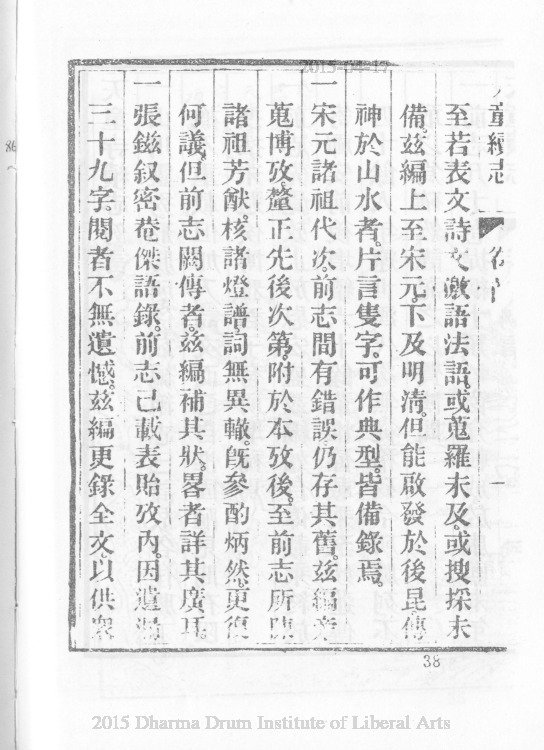 2015-04-17
童續志 一
至若表文詩文激語法語。或蒐羅未及。或搜採未
備。茲編上至宋元。下及明清。但能啟發於後昆。傳
神於山水者。片言隻字。可作典型。皆備錄焉。
一宋元諸祖代次。前志間有錯誤。仍存其舊。茲編
蒐博攷。釐正先後次第。附於本攷後。至前志所陳
諸祖芳猷。核諸燈譜。詞無異轍。旣參酌炳然。更復
何議。但前志闕傳者。茲編補其狀。畧者詳其廣耳。
一張鎡叙密菴傑語錄。前志已載表貽攷內。因遺漏
三十九字。閱者不無遺憾。茲編更錄全文。以供
86
38
2015 Dharma Drum Institute of Liberal Arts